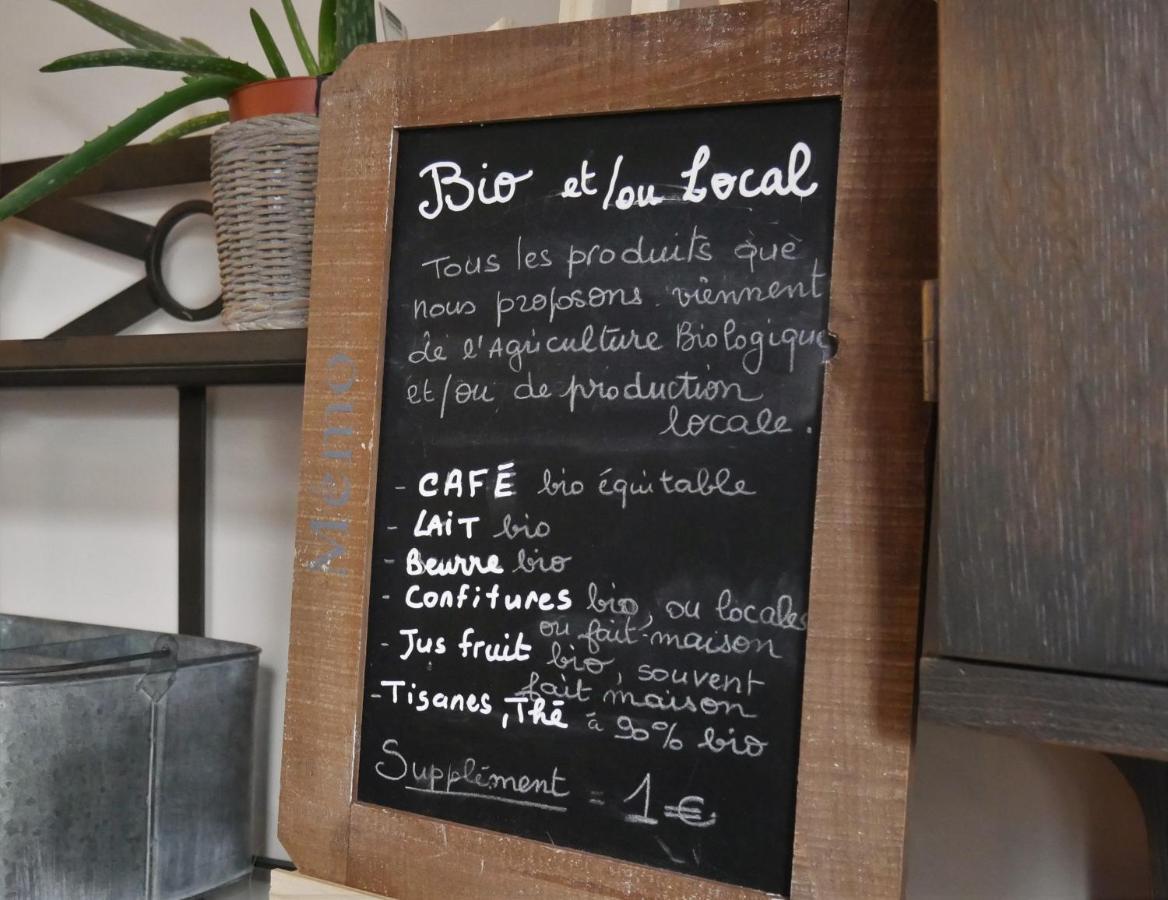 Mémo
Bio et/ou Local
Tous les produits que
nous proposons viennent
de l'Agriculture Biologique
et/ou de production
locale.
- CAFÉ bio équitable
- LAiT bio
- Beurre bio
- Confitures bio, ou locales
ou fait-maison
- Jus fruit bio, souvent
fait maison
- Tisanes, Thé à 90% bio
Supplément = 1€